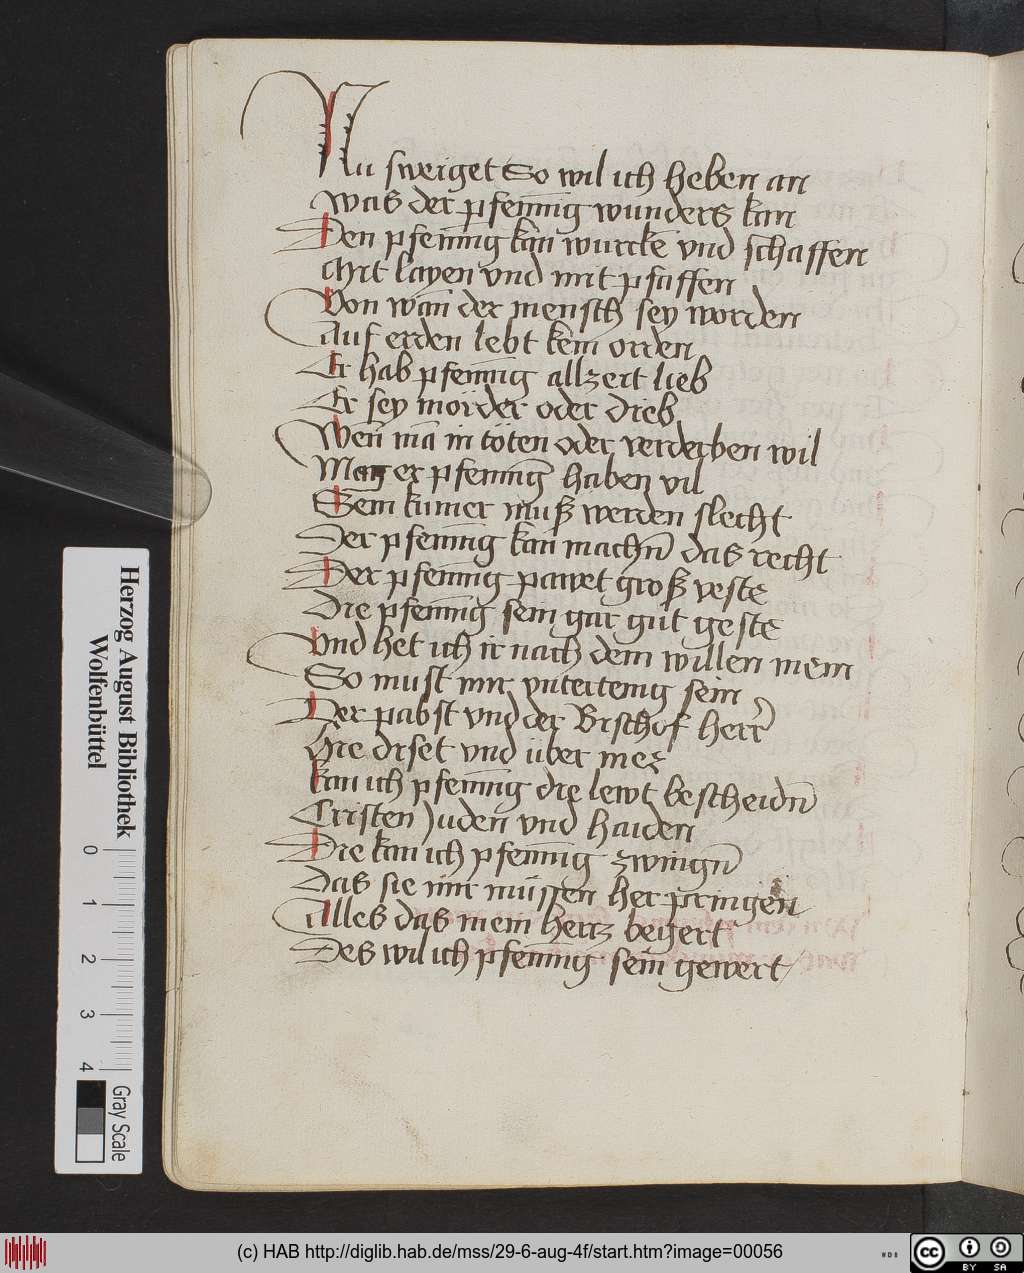 Nu sweiget So wil ich heben an
was der pfenning wunders kan
Den pfennig kan wurckē vnd schaffen
Mit layen vnd mit pfaffen
Von wan̄ der mensch sey worden
Auf erden lebt kein orden
Er hab pfennig allzeit lieb
Er sey mörder oder dieb
Wen̄ mā in töten oder verderben wil
Mag er pfenning haben vil
Sein kumer muß werden slecht
Der pfennig kan machn̄ das recht
Der pfennig pawet groß veste
Die pfennig sein gar gut geste
Vnd het ich ir nach dem willen mein
So must mir vntertenig sein
Der pabst vnd der Bischof herr
Hie diset vnd über mer
kan ich pfennig die lewt bescheidn̄
Cristen Juden vnd haiden
Die kan ich pfennig zwingn̄
Das sie mir müssen her pringen
Alles das mein hertz begert
Des wil ich pfennig sein gewert
Herzog August Bibliothek
Wolfenbüttel
0 1 2 3 4
Gray Scale
(c) HAB http://diglib.hab.de/mss/29-6-aug-4f/start.htm?image=00056
WDB
cc BY SA